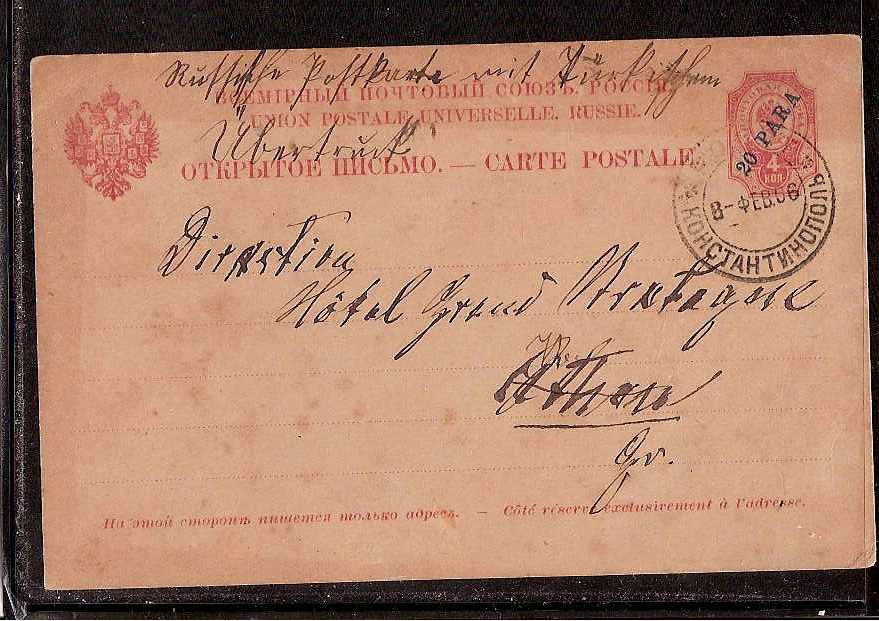 Russische Postkarte mit Türkischem
ВСЕМІРНЫЙ ПОЧТОВЫЙ СОЮЗЪ. РОССІЯ
UNION POSTALE UNIVERSELLE. RUSSIE.
Überdruck
ОТКРЫТОЕ ПИСЬМО. — CARTE POSTALE.
20 PARA
4
КОП
8-ФЕВ.06
КОНСТАНТИНОПОЛЬ
Direction
Hôtel Grand Bretagne
Athen
Gr.
На этой сторонѣ пишется только адресъ. — Côté réservé exclusivement à l'adresse.